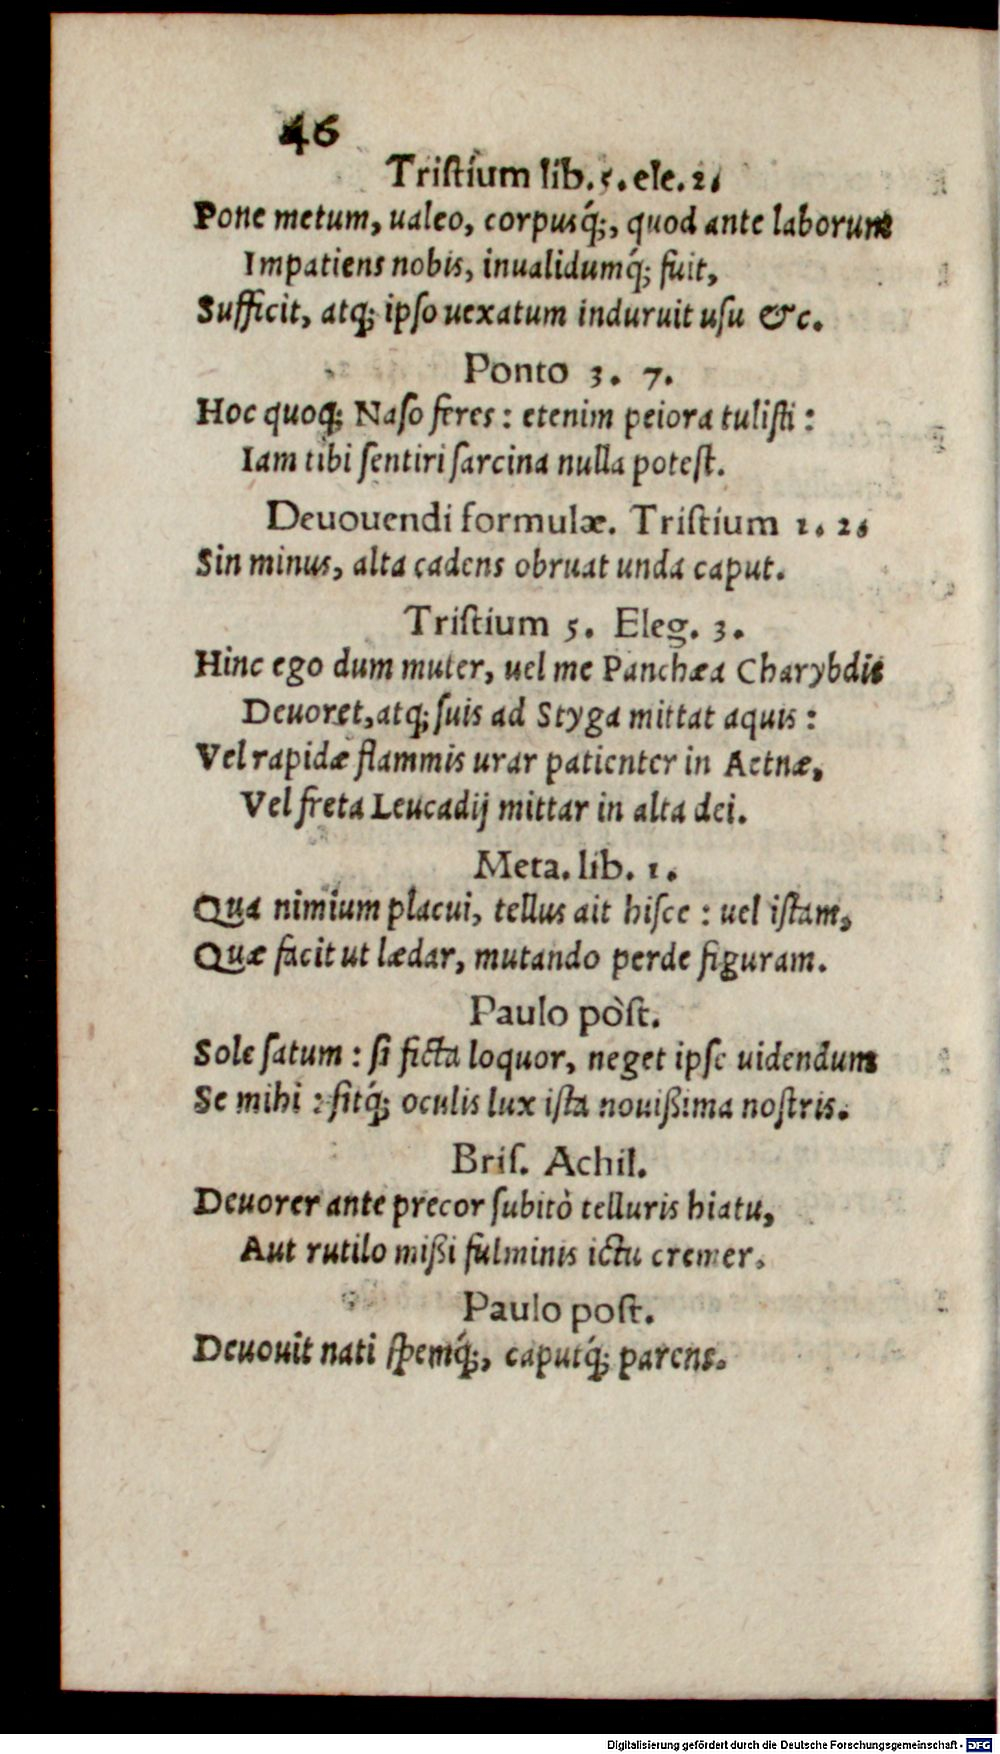 46
Tristium lib. 5. ele. 2.
Pone metum, ualeo, corpusq́;, quod ante laborum
Impatiens nobis, inualidumq́; fuit,
Sufficit, atq; ipso uexatum induruit usu &c.
Ponto 3. 7.
Hoc quoq; Naso feres : etenim peiora tulisti :
Iam tibi sentiri sarcina nulla potest.
Deuouendi formulæ. Tristium 1. 2.
Sin minus, alta cadens obruat unda caput.
Tristium 5. Eleg. 3.
Hinc ego dum muter, uel me Panchæa Charybdis
Deuoret, atq; suis ad Styga mittat aquis :
Vel rapidæ flammis urar patienter in Aetnæ,
Vel freta Leucadij mittar in alta dei.
Meta. lib. 1.
Qua nimium placui, tellus ait hisce : uel istam,
Quæ facit ut lædar, mutando perde figuram.
Paulo pòst.
Sole satum : si ficta loquor, neget ipse uidendum
Se mihi : sitq́; oculis lux ista nouißima nostris.
Bris. Achil.
Deuorer ante precor subitò telluris hiatu,
Aut rutilo mißi fulminis ictu cremer.
Paulo post.
Deuouit nati spemq́;, caputq́; parens.
Digitalisierung gefördert durch die Deutsche Forschungsgemeinschaft - DFG